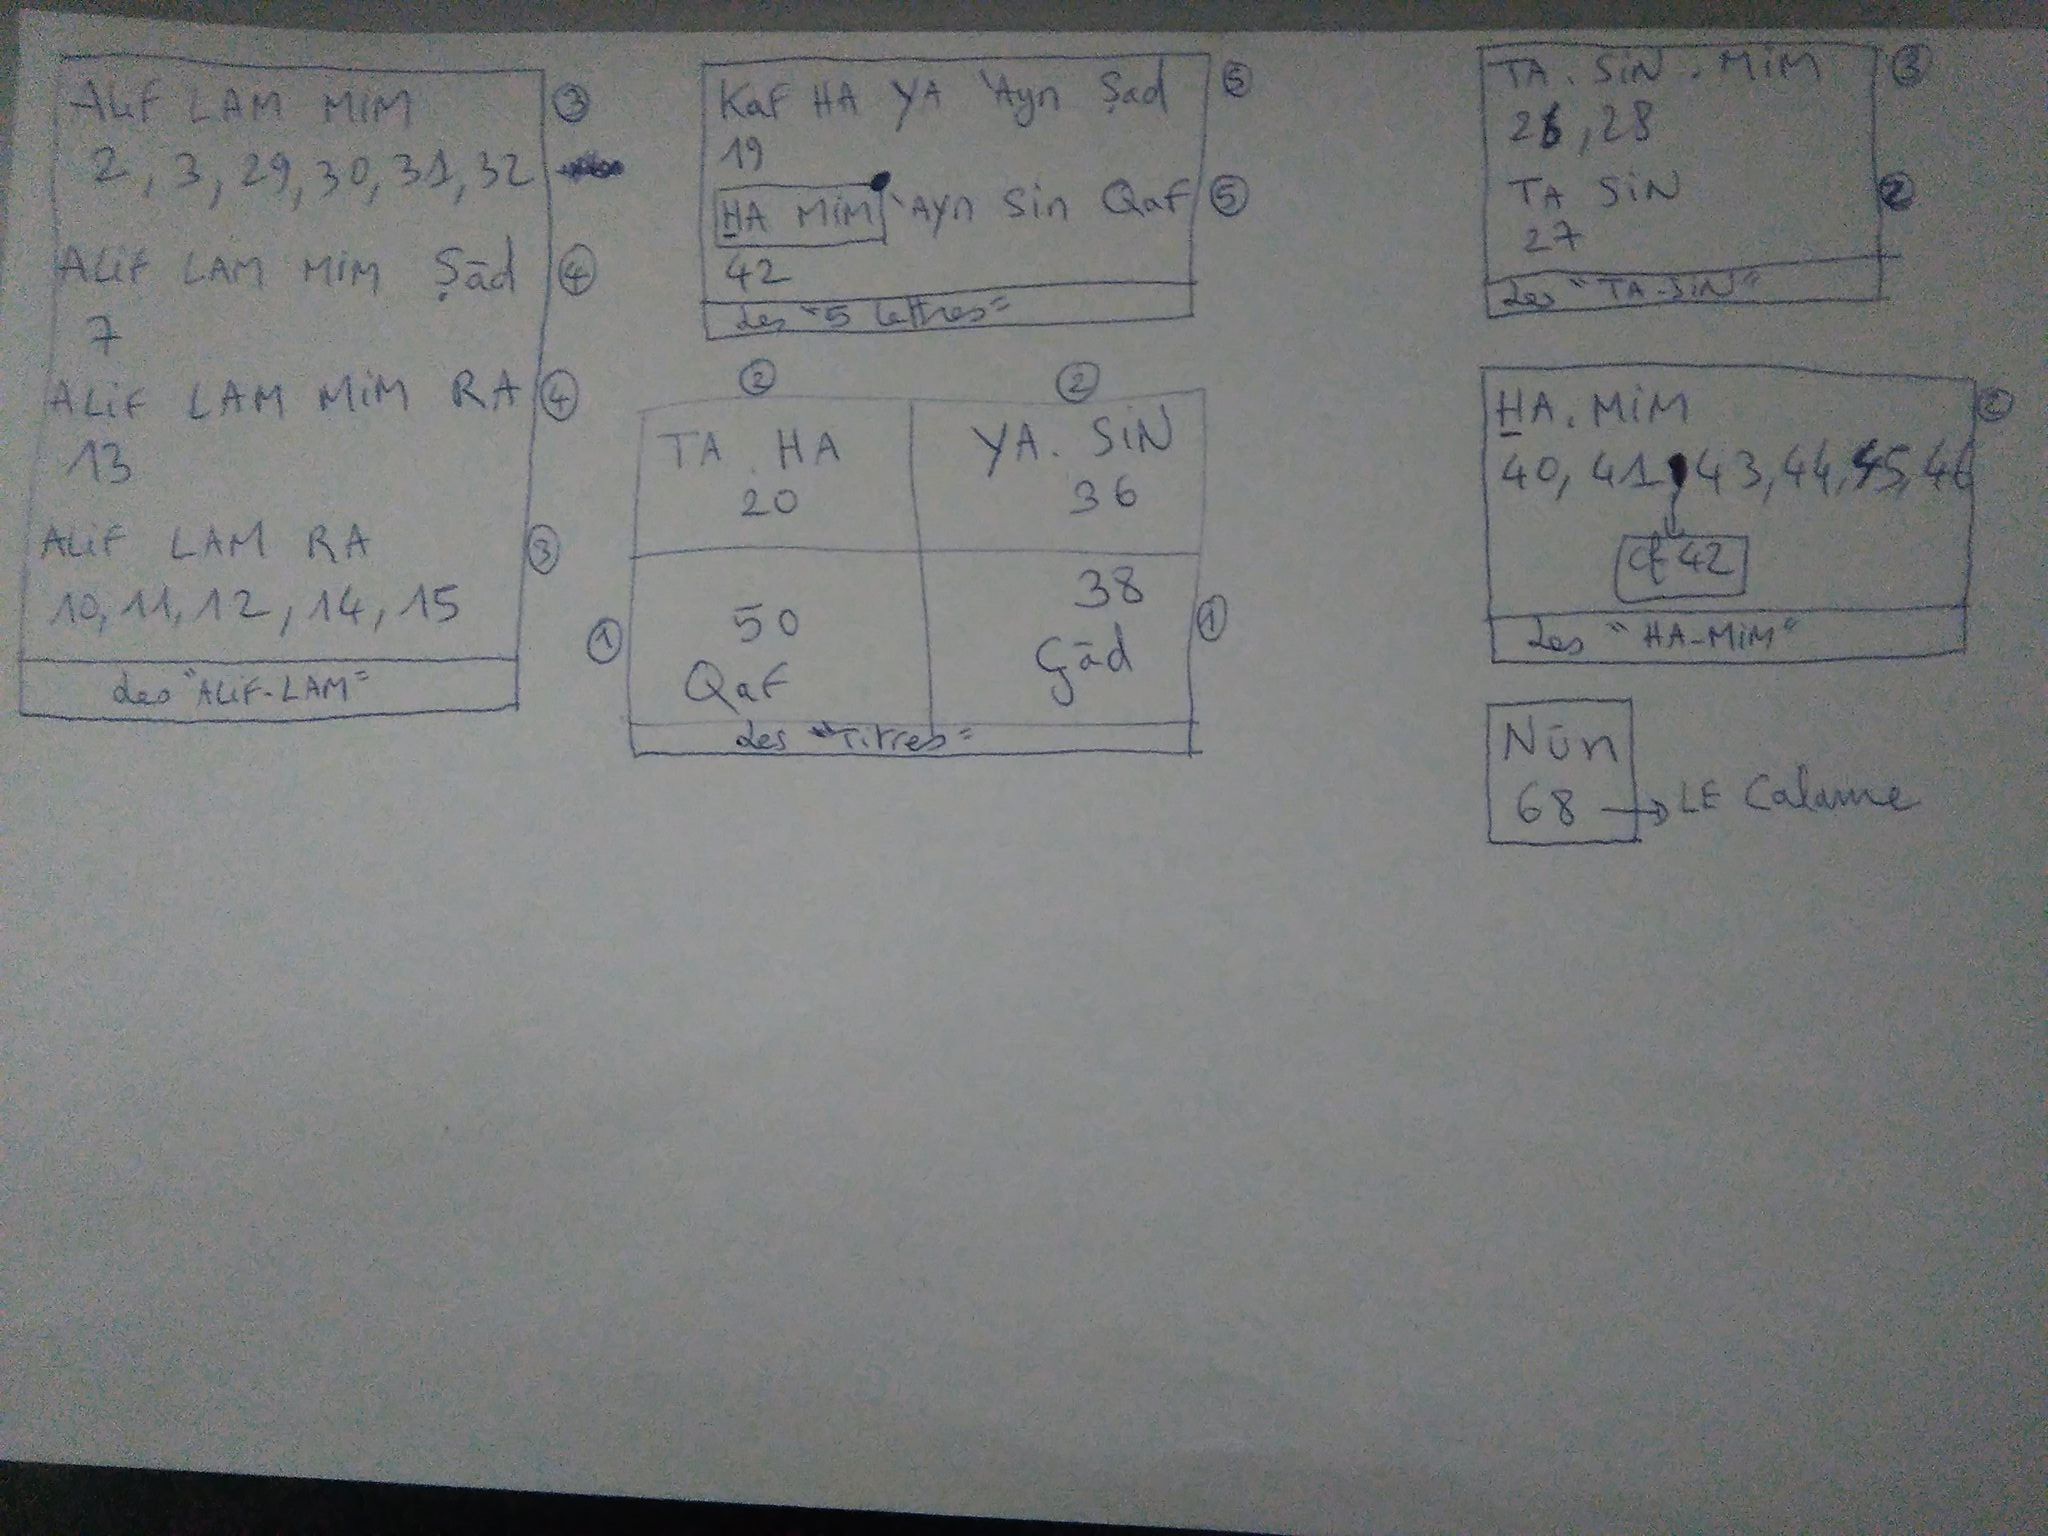 ALIF LAM MIM ③
2, 3, 29, 30, 31, 32
ALIF LAM MIM Ṣād ④
7
ALIF LAM MIM RA ④
13
ALIF LAM RA ③
10, 11, 12, 14, 15
Les "ALIF-LAM"
Kaf HA YA 'Ayn Ṣad ⑤
19
HA MIM 'Ayn Sin Qaf ⑤
42
Les "5 lettres"
② ②
TA. HA YA. SIN
20 36
① 50 38 ①
Qaf Çād
Les "Titres"
TA. SIN. MIM ③
26, 28
TA SIN ②
27
Les "TA-SIN"
HA. MIM ②
40, 41, 43, 44, 45, 46
cf 42
Les "HA-MIM"
Nūn
68 → LE Calame